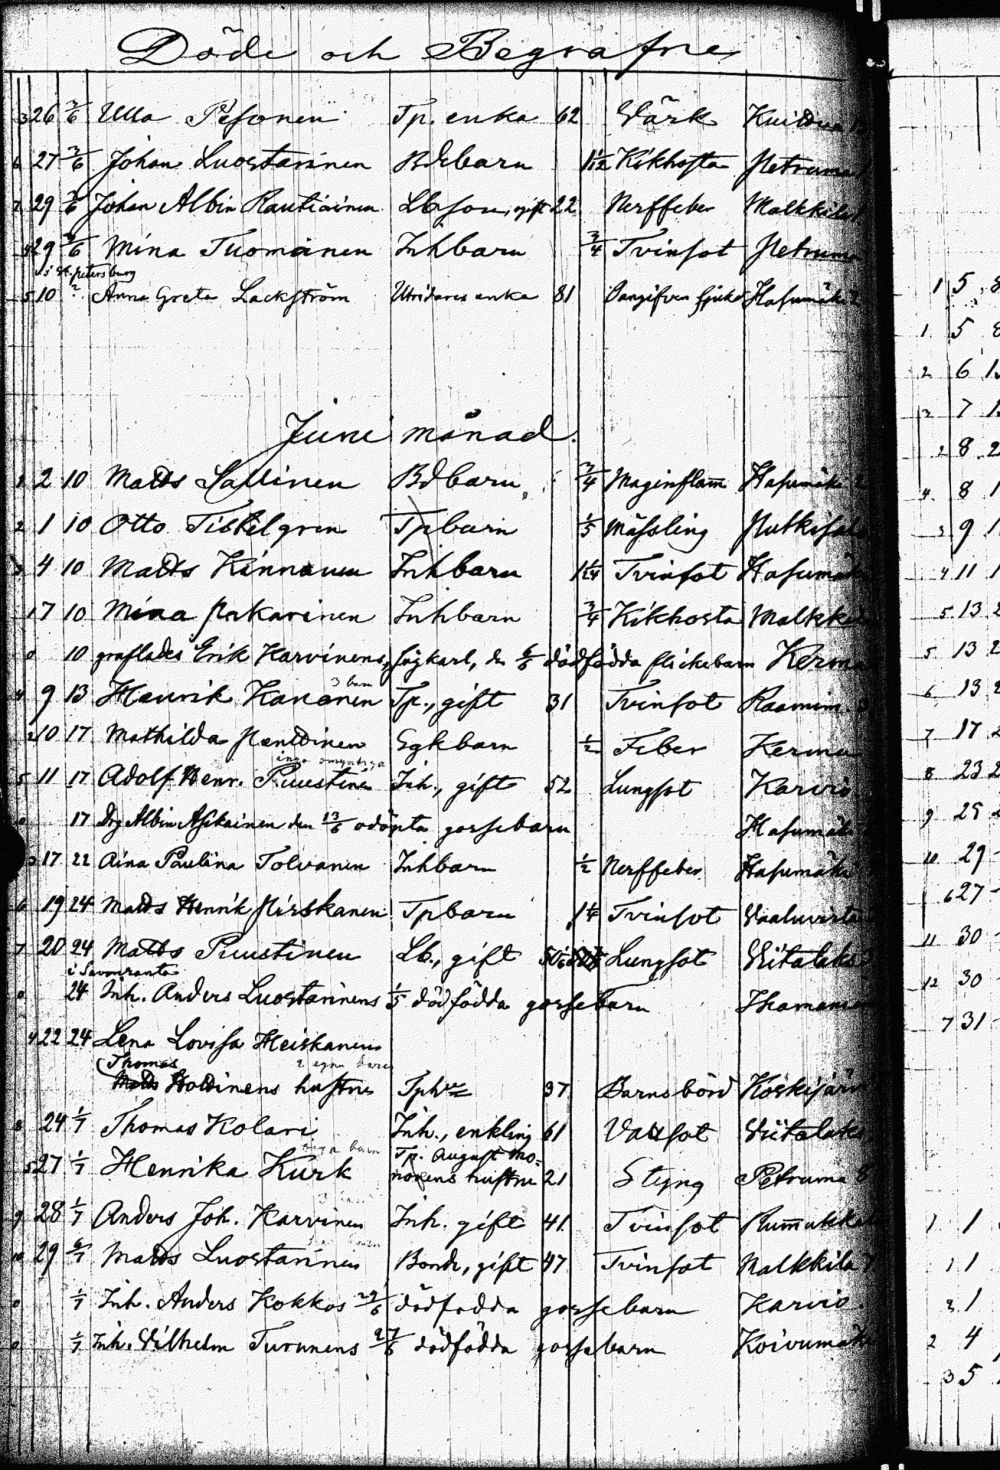 Döde och Begrafne
3 26 3/6 Ulla Pesonen Tp. enka 62 Värk
6 27 3/6 Johan Luostarinen Bdebarn 1 1/12 Kikhosta Petruma
7 29 3/6 Johan Albin Rautiainen Lb son, gift 22 Nerffeber Malkkila
29 3/6 Mina Tuomainen Inhbarn 3/4 Tvinsot Petruma
i St. Petersburg
5 10 ? Anna Greta Lackström enka 81 Hasumäki 2
Juni månad.
1 2 10 Matts Sallinen Bdbarn 3/4 Maginflam Hasumäki 2
2 1 10 Otto Tistelgren Tpbarn 1/5 Mässling
3 4 10 Matts Kinnunen Inhbarn 1 1/4 Tvinsot Hasumäki
1 7 10 Mina Pakarinen Inhbarn 3/4 Kikhosta Malkkila
0 10 Erik Karvinens, den 6/6 dödfödda flickebarn Kerma
3 barn
4 9 13 Henrik Kananen Tp., gift 31 Tvinsot
2 10 17 Mathilda Penttinen Egkbarn 1/2 Feber Kerma
inga omyndiga
5 11 17 Adolf Henr. Puustinen Inh., gift 52 Lungsot Karvio
0 17 Drg Albin Asikainen den 13/6 odöpta gossebarn Hasumäki
3 17 22 Aina Paulina Tolvanen Inhbarn 1/2 Nerffeber Hasumäki
6 19 24 Matts Henrik Pirskanen Tpbarn 1 1/4 Tvinsot Vaaluvirta
7 20 24 Matts Puustinen Lb., gift Lungsot Viitalaks
i Savonranta
0 24 Inh. Anders Luostarinens 1/5 dödfödda gossebarn
4 22 24 Lena Lovisa Heiskanen
Thomas 2 egna barn
Hottinens hustru Tph 37 Barnsbörd Koskijärvi
8 24 1/7 Thomas Kolari Inh., enkling 61 Vattsot Viitalaks
inga barn Tp. August Mo-
5 27 1/7 Henrika Kurk nonens hustru 21 Styng Petruma 8
9 28 1/7 Anders Joh. Karvinen Inh. gift 41 Tvinsot Rummukkala
10 29 6/7 Matts Luostarinen Bonde, gift 47 Tvinsot Malkkila 7
0 1/7 Inh. Anders Kokkos 29/6 dödfödda gossebarn Karvio
0 1/7 Inh. Vilhelm Turunens 27/6 dödfödda gossebarn Koivumäki
1 5 8
1 5 8
2 6 1
2 7 1
2 8 2
4 8 1
3 9 1
4 11 1
5 13 2
5 13 2
6 13 2
7 17 2
8 23 2
9 25 2
10 29
6 27
11 30
12 30
7 31
1 1
1 1
2 1
2 4
3 5